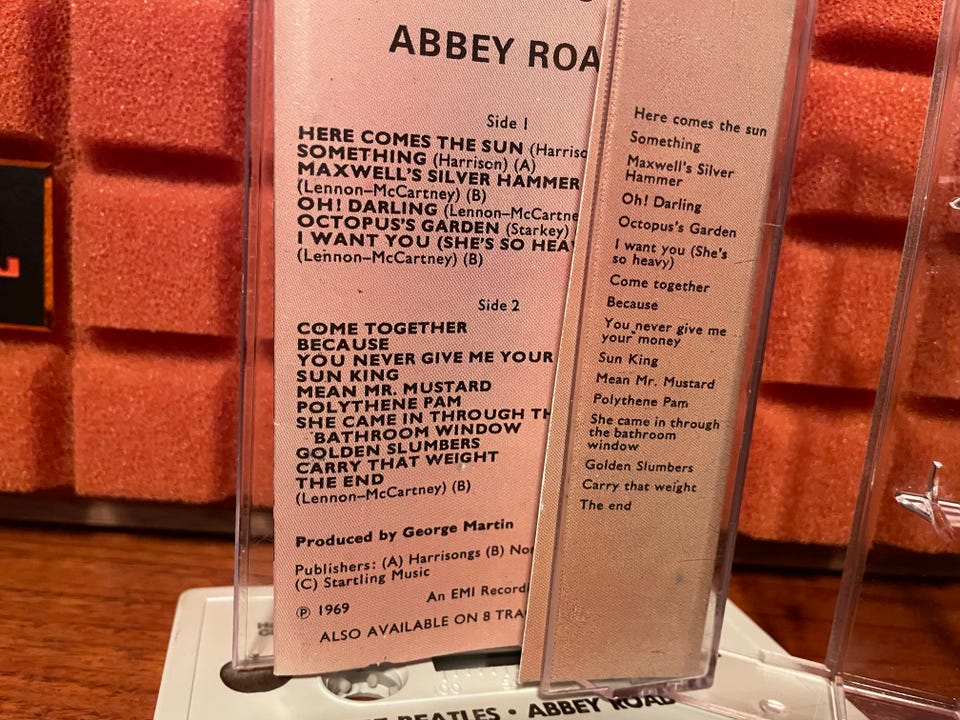 ABBEY ROA
Side 1
HERE COMES THE SUN (Harriso
SOMETHING (Harrison) (A)
MAXWELL'S SILVER HAMMER
(Lennon–McCartney) (B)
OH! DARLING (Lennon–McCartne
OCTOPUS'S GARDEN (Starkey)
I WANT YOU (SHE'S SO HEA
(Lennon–McCartney) (B)
Side 2
COME TOGETHER
BECAUSE
YOU NEVER GIVE ME YOUR
SUN KING
MEAN MR. MUSTARD
POLYTHENE PAM
SHE CAME IN THROUGH TH
BATHROOM WINDOW
GOLDEN SLUMBERS
CARRY THAT WEIGHT
THE END
(Lennon–McCartney) (B)
Produced by George Martin
Publishers: (A) Harrisongs (B) Nor
(C) Startling Music
An EMI Recordi
℗ 1969
ALSO AVAILABLE ON 8 TRA
Here comes the sun
Something
Maxwell's Silver
Hammer
Oh! Darling
Octopus's Garden
I want you (She's
so heavy)
Come together
Because
You never give me
your money
Sun King
Mean Mr. Mustard
Polythene Pam
She came in through
the bathroom
window
Golden Slumbers
Carry that weight
The end
BEATLES · ABBEY ROAD